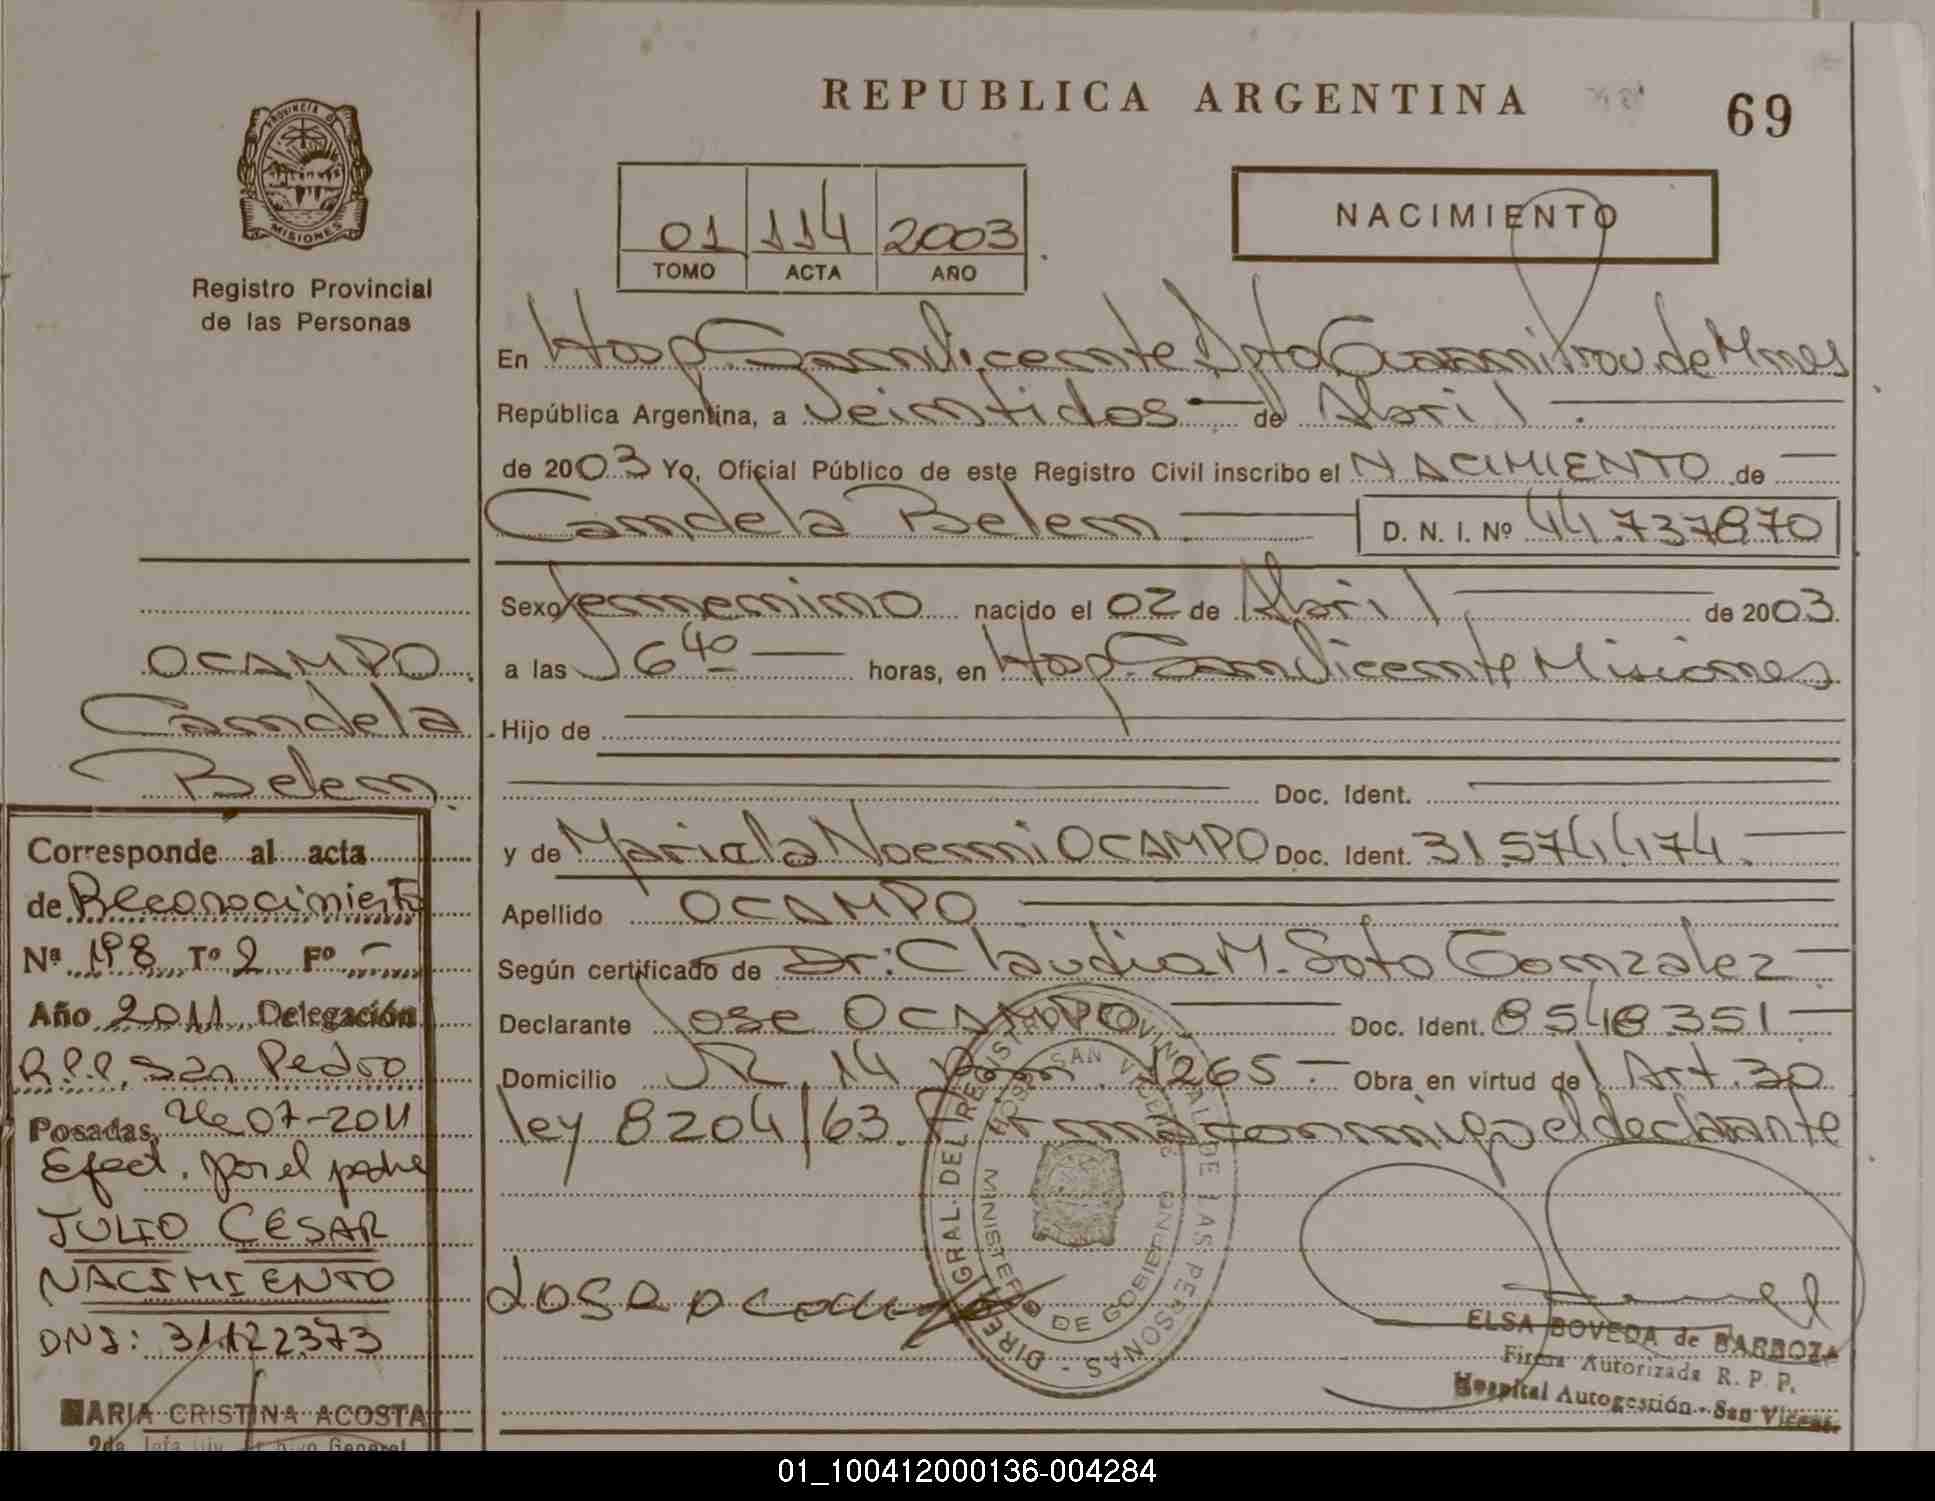 REPUBLICA ARGENTINA
69
PROVINCIA DE MISIONES
Registro Provincial
de las Personas
01 114 2003
TOMO ACTA AÑO
NACIMIENTO
En Hosp. San Vicente Dpto Guaraní Prov. de Mnes
República Argentina, a Veintidos de Abril
de 2003 Yo, Oficial Público de este Registro Civil inscribo el NACIMIENTO de
Candela Belem D. N. I. Nº 44.737870
Sexo femenino nacido el 02 de Abril de 2003.
a las 16 40 horas, en Hosp. San Vicente Misiones
Hijo de
Doc. Ident.
y de Mariela Noemi OCAMPO Doc. Ident. 31.574.474.
Apellido OCAMPO
Según certificado de Dr: Claudia M. Soto Gonzalez
Declarante Jose OCAMPO Doc. Ident. 8548351
Domicilio R. 14 1265 Obra en virtud de Art. 30
ley 8204/63. Firma conmigo el declarante
Jose Ocampo
DIREC. GRAL. DEL REGISTRO PROVINCIAL DE LAS PERSONAS
HOSP. SAN VICENTE
MINISTERIO DE GOBIERNO
ELSA BOVEDA de BARBOZA
Firma Autorizada R. P. P.
Hospital Autogestión - San Vicente
OCAMPO
Candela
Belem.
Corresponde al acta
de Reconocimiento
Nº 198 Tº 2 Fº -
Año 2011 Delegación
R.P.P. San Pedro
Posadas, 26 07-2011
Efect. por el padre
JULIO CESAR
NACIMIENTO
DNI: 31122373
MARIA CRISTINA ACOSTA
2da Jefa Div. Archivo General
01_100412000136-004284